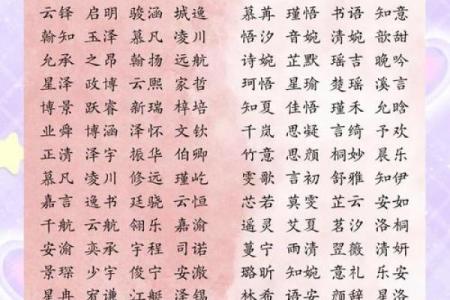 云铎 启明 骏涵 城逸 慕苒 瑾悟 书语 知意
翰知 玉泽 慕凡 凌川 悟汐 音婉 清婉 歆甜
允承 之昂 翰扬 远航 诗婉 芷默 瑶吉 晚吟
星泽 政博 云熙 家哲 珂悟 星瑜 楚瑶 溪言
博景 跃睿 新瑞 梓培 知夏 佳悟 瑾禾 允晗
业舜 博涵 泽怀 文钦 千岚 思凝 言绮 予欢
正清 泽宇 振华 伯卿 竹意 思颜 桐妙 晨乐
慕凡 凌川 修远 瑾屹 雯歌 言初 舒雅 知伊
嘉言 逸书 廷骁 云恒 芯若 莫雯 芷云 安如
千航 云航 翎乐 嘉渝 遥灵 艾夏 茗汐 洛桐
安渝 奕承 宇程 司诺 蔓宁 雨清 翌薇 清妍
景琛 少宇 俊宁 安澈 璐昕 知婉 意礼 乐安
星冉 宥谦 江毓 泽锡 林希 语安 颜辞 星洛